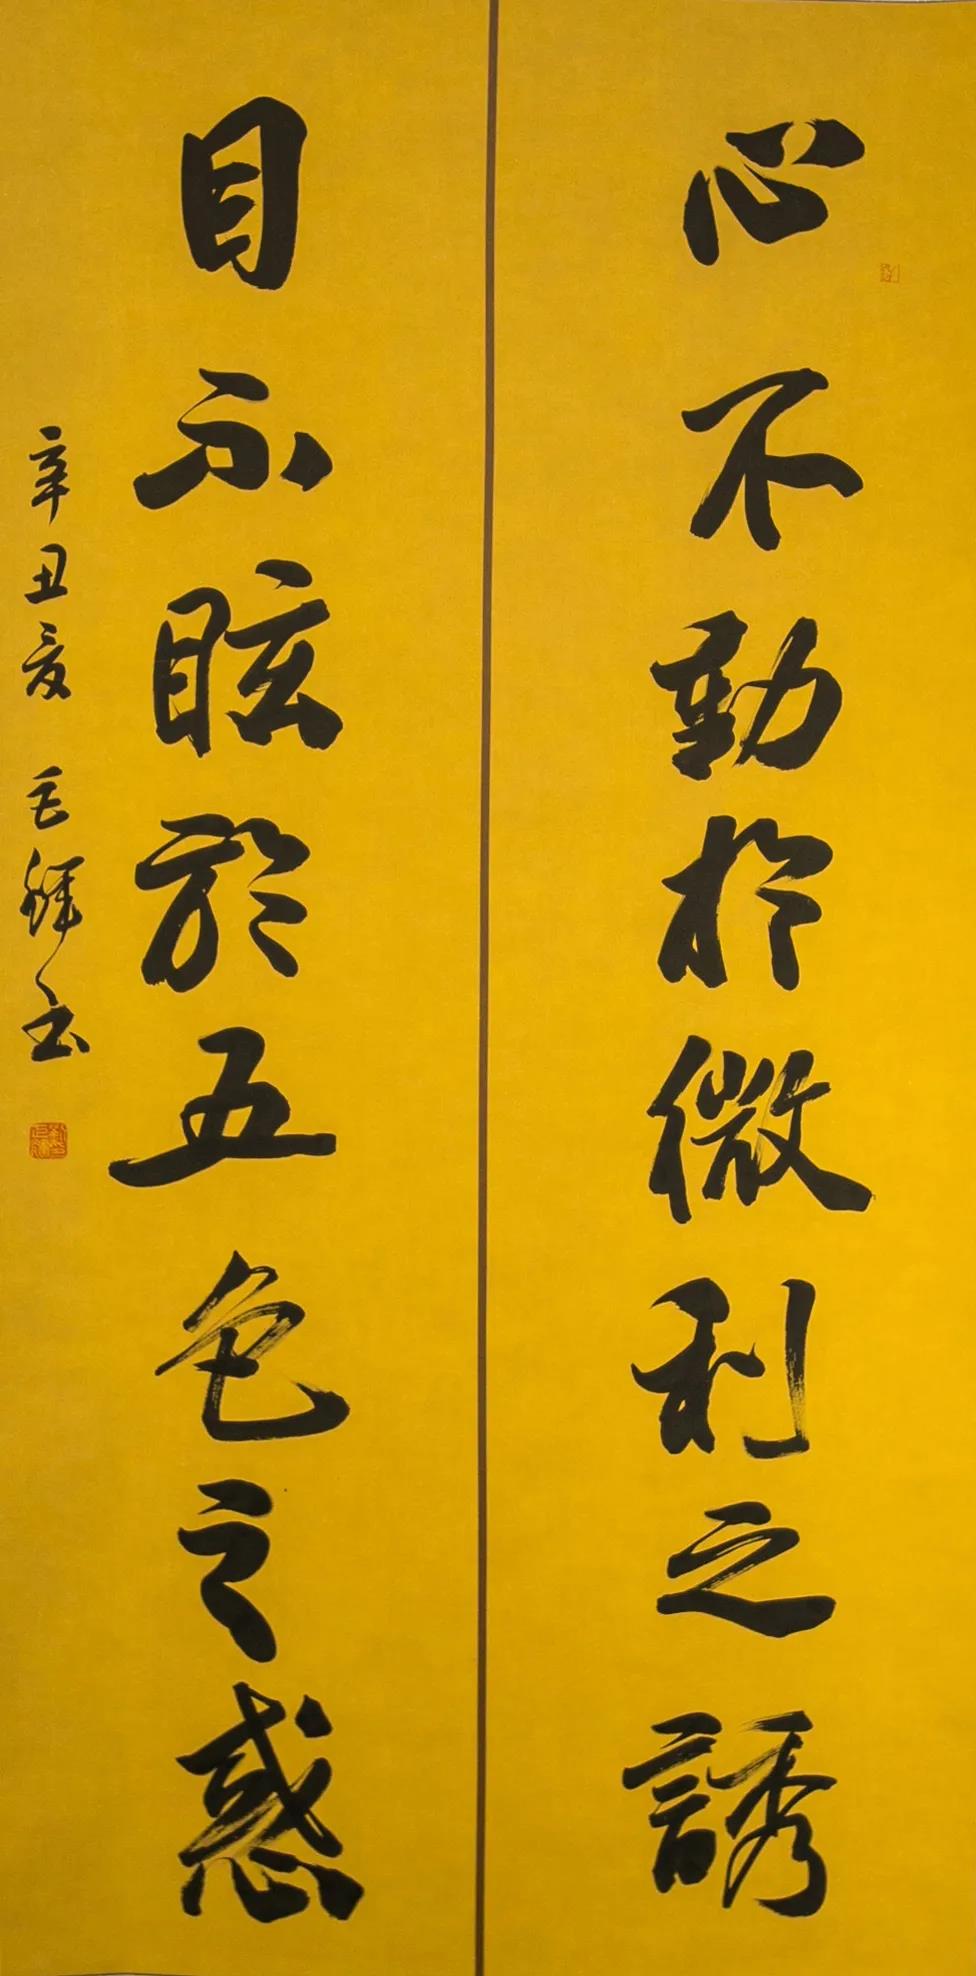 心不動於微利之誘
目不眩於五色之惑
辛丑夏 毛輝書